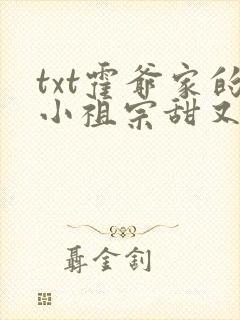 txt霍爷家的
小祖宗甜又
聂金钊